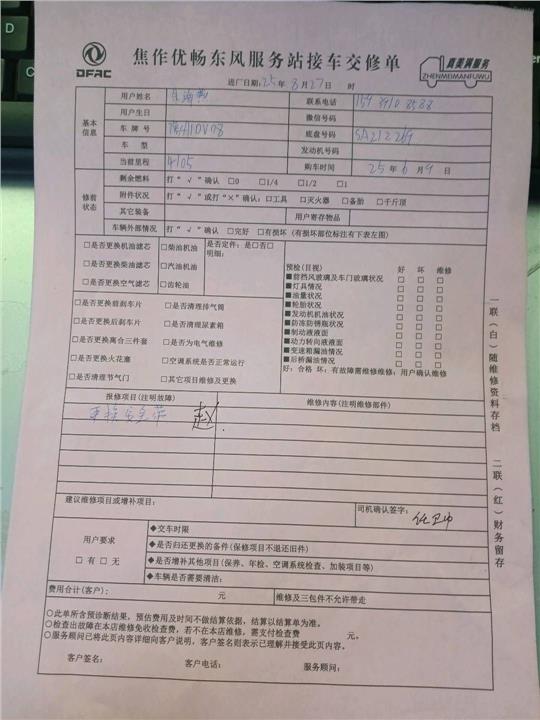 D
DFAC
焦作优畅东风服务站接车交修单
真美满服务
ZHENMEIMANFUWU
进厂日期:25年8月27日 时
基本信息
用户姓名
联系电话 159 3910 8588
用户生日
微信号码
车牌号
底盘号码 SA212269
车型
发动机号码
当前里程 4105
购车时间 25年6月9日
修前状态
剩余燃料 打“√”确认 □0 □1/4 □1/2 □1
附件状况 打“√”或打“×”确认：□工具 □灭火器 □备胎 □千斤顶
其它装备 用户寄存物品
车辆外部情况 打“√”确认 □完好 □有损坏（有损坏部位标注有下表左图）
□是否更换机油滤芯 □柴油机油
□是否更换柴油滤芯 □汽油机油
□是否更换空气滤芯 □齿轮油
是否定件：是□否□
明细：
□是否更换前刹车片 □是否清理排气筒
□是否更换后刹车片 □是否清理尿素箱
□是否更换离合三件套 □是否为电气维修
□是否更换火花塞 □空调系统是否正常运行
□是否清理节气门 □其它项目维修及更换
预检(目视) 好 坏 维修
■前挡风玻璃及车门玻璃状况 □ □ □
■灯具情况 □ □ □
■油量状况 □ □ □
■轮胎状况 □ □ □
■发动机机油状况 □ □ □
■防冻防锈瓶状况 □ □ □
■制动液液面 □ □ □
■动力转向液液面 □ □ □
■变速箱漏油情况 □ □ □
■后桥漏油情况 □ □ □
好：合格 坏：有故障需维修维修：用户确认维修
报修项目(注明故障) 维修内容(注明维修部件)
更换
赵
建议维修项目或增补项目：
司机确认签字：
用户要求
□有 □无
◆交车时限
◆是否归还更换的备件(保修项目不退还旧件)
◆是否增补其他项目(保养、年检、空调系统检查、加装项目等)
◆车辆是否需要清洁：
费用合计(客户)： 元 维修及三包件不允许带走
○此单所含预诊断结果，预估费用及时间不做结算依据，结算以结算单为准。
○检查出故障在本店维修免收检查费，若不在本店维修，需支付检查费 元。
○服务顾问已将此页内容详细向客户说明，客户签名则表示已理解并接受此页内容。
客户签名： 客户电话： 服务顾问：
一联（白）随维修资料存档
二联（红）财务留存